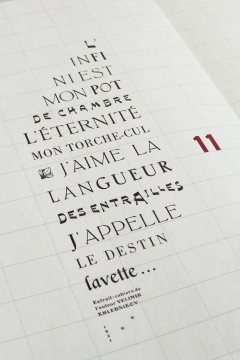 L'
INFI
NI EST
MON POT
DE CHAMBRE
L'ÉTERNITÉ
MON TORCHE-CUL
J'AIME LA
LANGUEUR
DES ENTRAILLES
J'APPELLE
LE DESTIN
lavette...
Extrait: cahiers de
l'auteur VELIMIR
KHLEBNIKOV
11